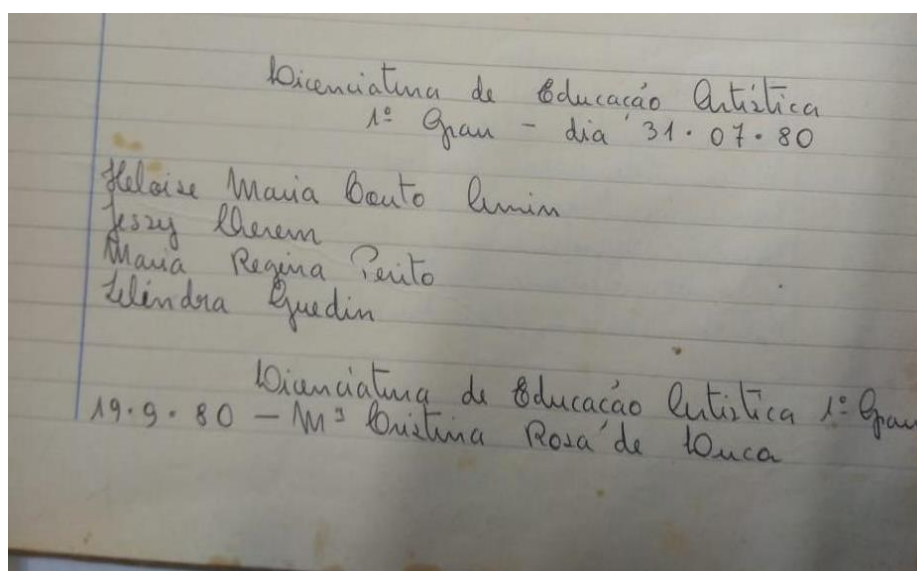 Licenciatura de Educação Artística
1º Grau - dia 31.07.80
Heloise Maria Couto Amin
Jessy Cherem
Maria Regina Perito
Zelindra Guedin
Licenciatura de Educação Artística 1º Grau
19.9.80 - Mª Cristina Rosa de Luca